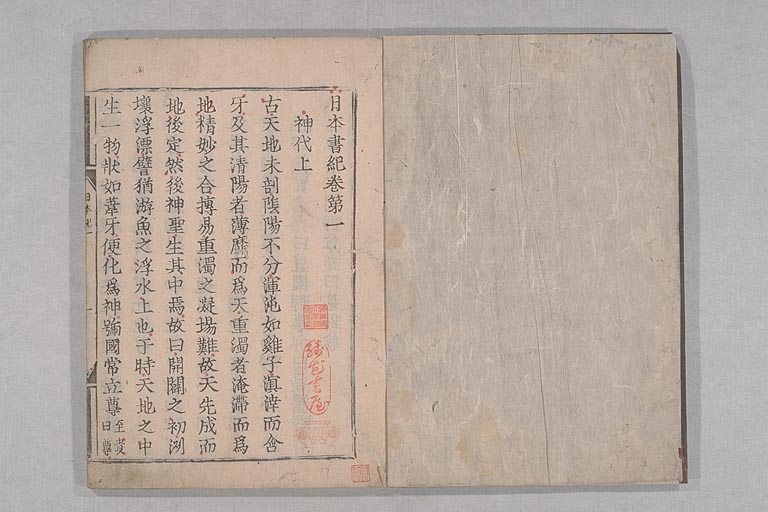 日本書紀卷第一
神代上
古天地未剖陰陽不分渾沌如雞子溟涬而含
牙及其清陽者薄靡而爲天重濁者淹滯而爲
地精妙之合搏易重濁之凝埸難故天先成而
地後定然後神聖生其中焉故曰開闢之初洲
壤浮漂譬猶游魚之浮水上也于時天地之中
生一物狀如葦牙便化爲神號國常立尊至貴
曰尊
日本紀一